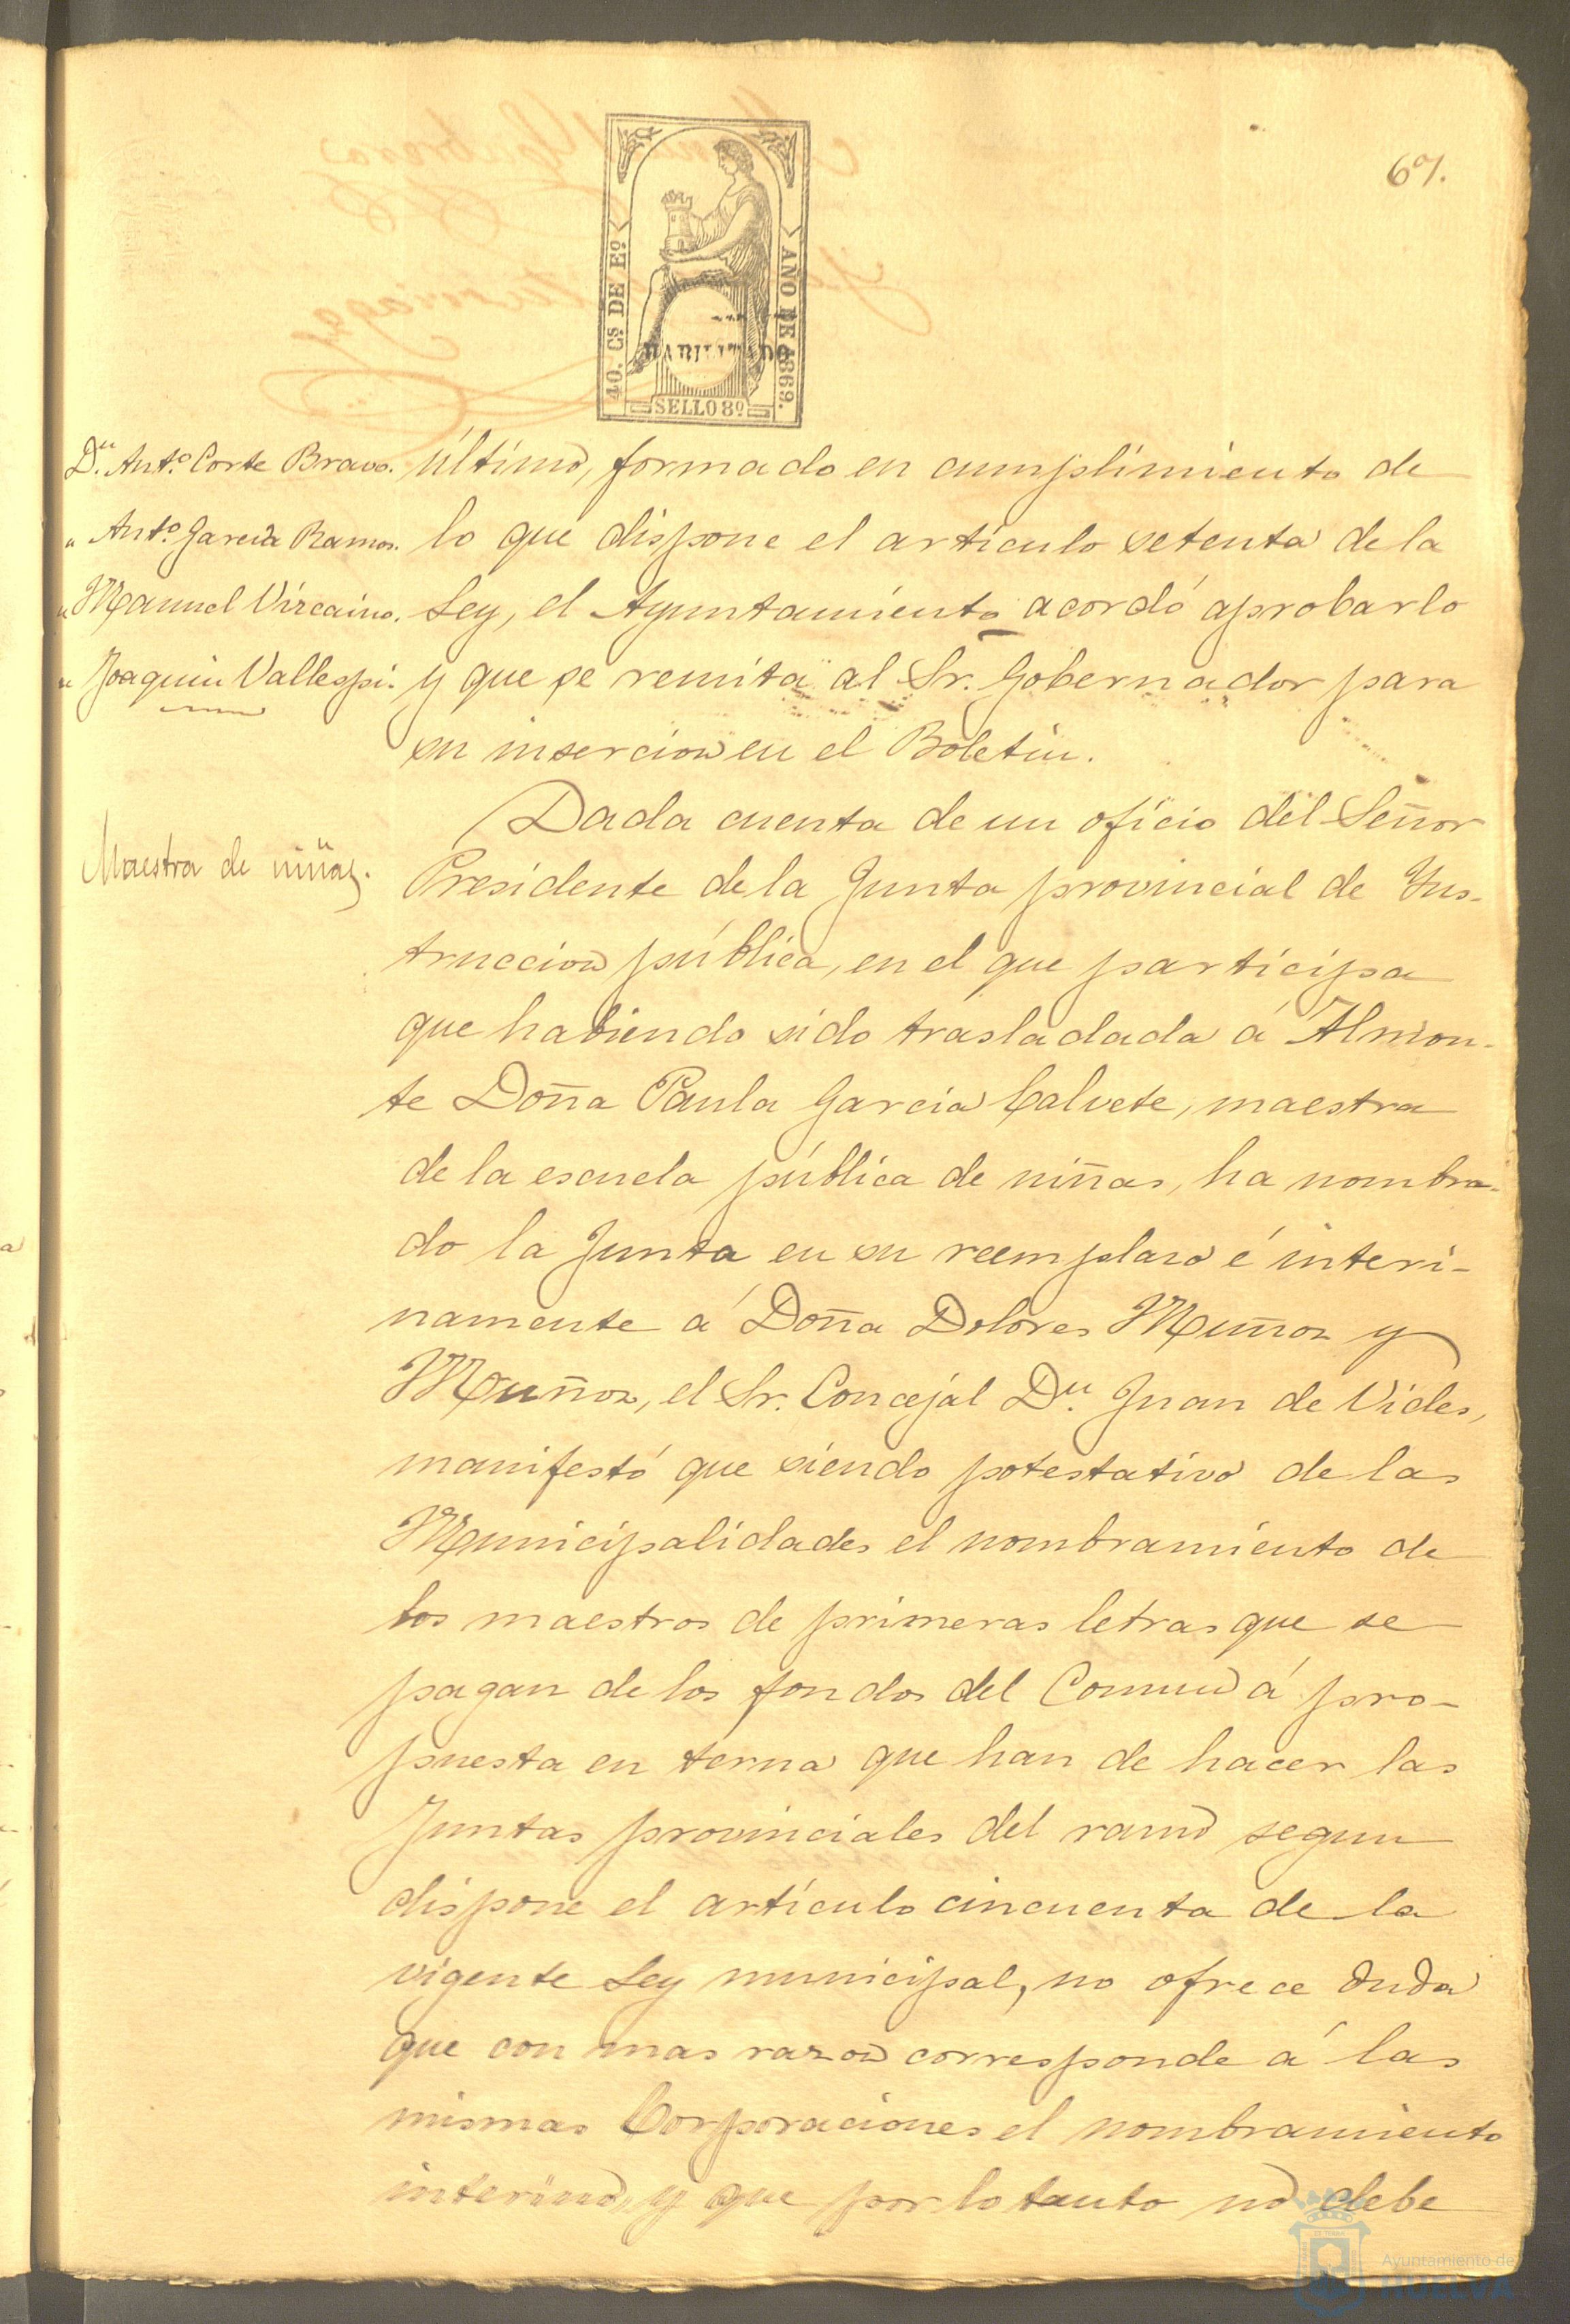 67.
40. Cs DE Eº
AÑO DE 1869.
HABILITADO
SELLO 8º
Dn. Antº Corte Bravo.
" Antº Garcia Ramos.
" Manuel Vizcaino.
" Joaquin Vallespi.
último, formado en cumplimiento de
lo que dispone el artículo setenta de la
Ley, el Ayuntamiento acordó aprobarlo
y que se remita al Sr. Gobernador para
su insercion en el Boletin.
Maestra de niñas.
Dada cuenta de un oficio del Señor
Presidente de la Junta provincial de Yns-
truccion pública, en el que participa
que habiendo sido trasladada á Almon-
te Doña Paula Garcia Calvete, maestra
de la escuela pública de niñas, ha nombra-
do la Junta en su reemplazo é interi-
namente á Doña Dolores Muñoz y
Muñoz, el Sr. Concejal Dn. Juan de Vides,
manifestó que siendo potestativo de las
Municipalidades el nombramiento de
los maestros de primeras letras que se
pagan de los fondos del Comun á pro-
puesta en terna que han de hacer las
Juntas provinciales del ramo segun
dispone el artículo cincuenta de la
vigente Ley municipal, no ofrece duda
que con mas razon corresponde á las
mismas Corporaciones el nombramiento
interino, y que por lo tanto no debe
Ayuntamiento de
HUELVA